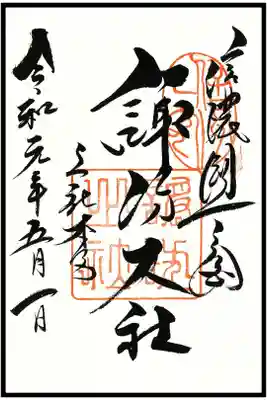 信濃國一之宮
諏訪大社
上社本宮
令和元年五月一日